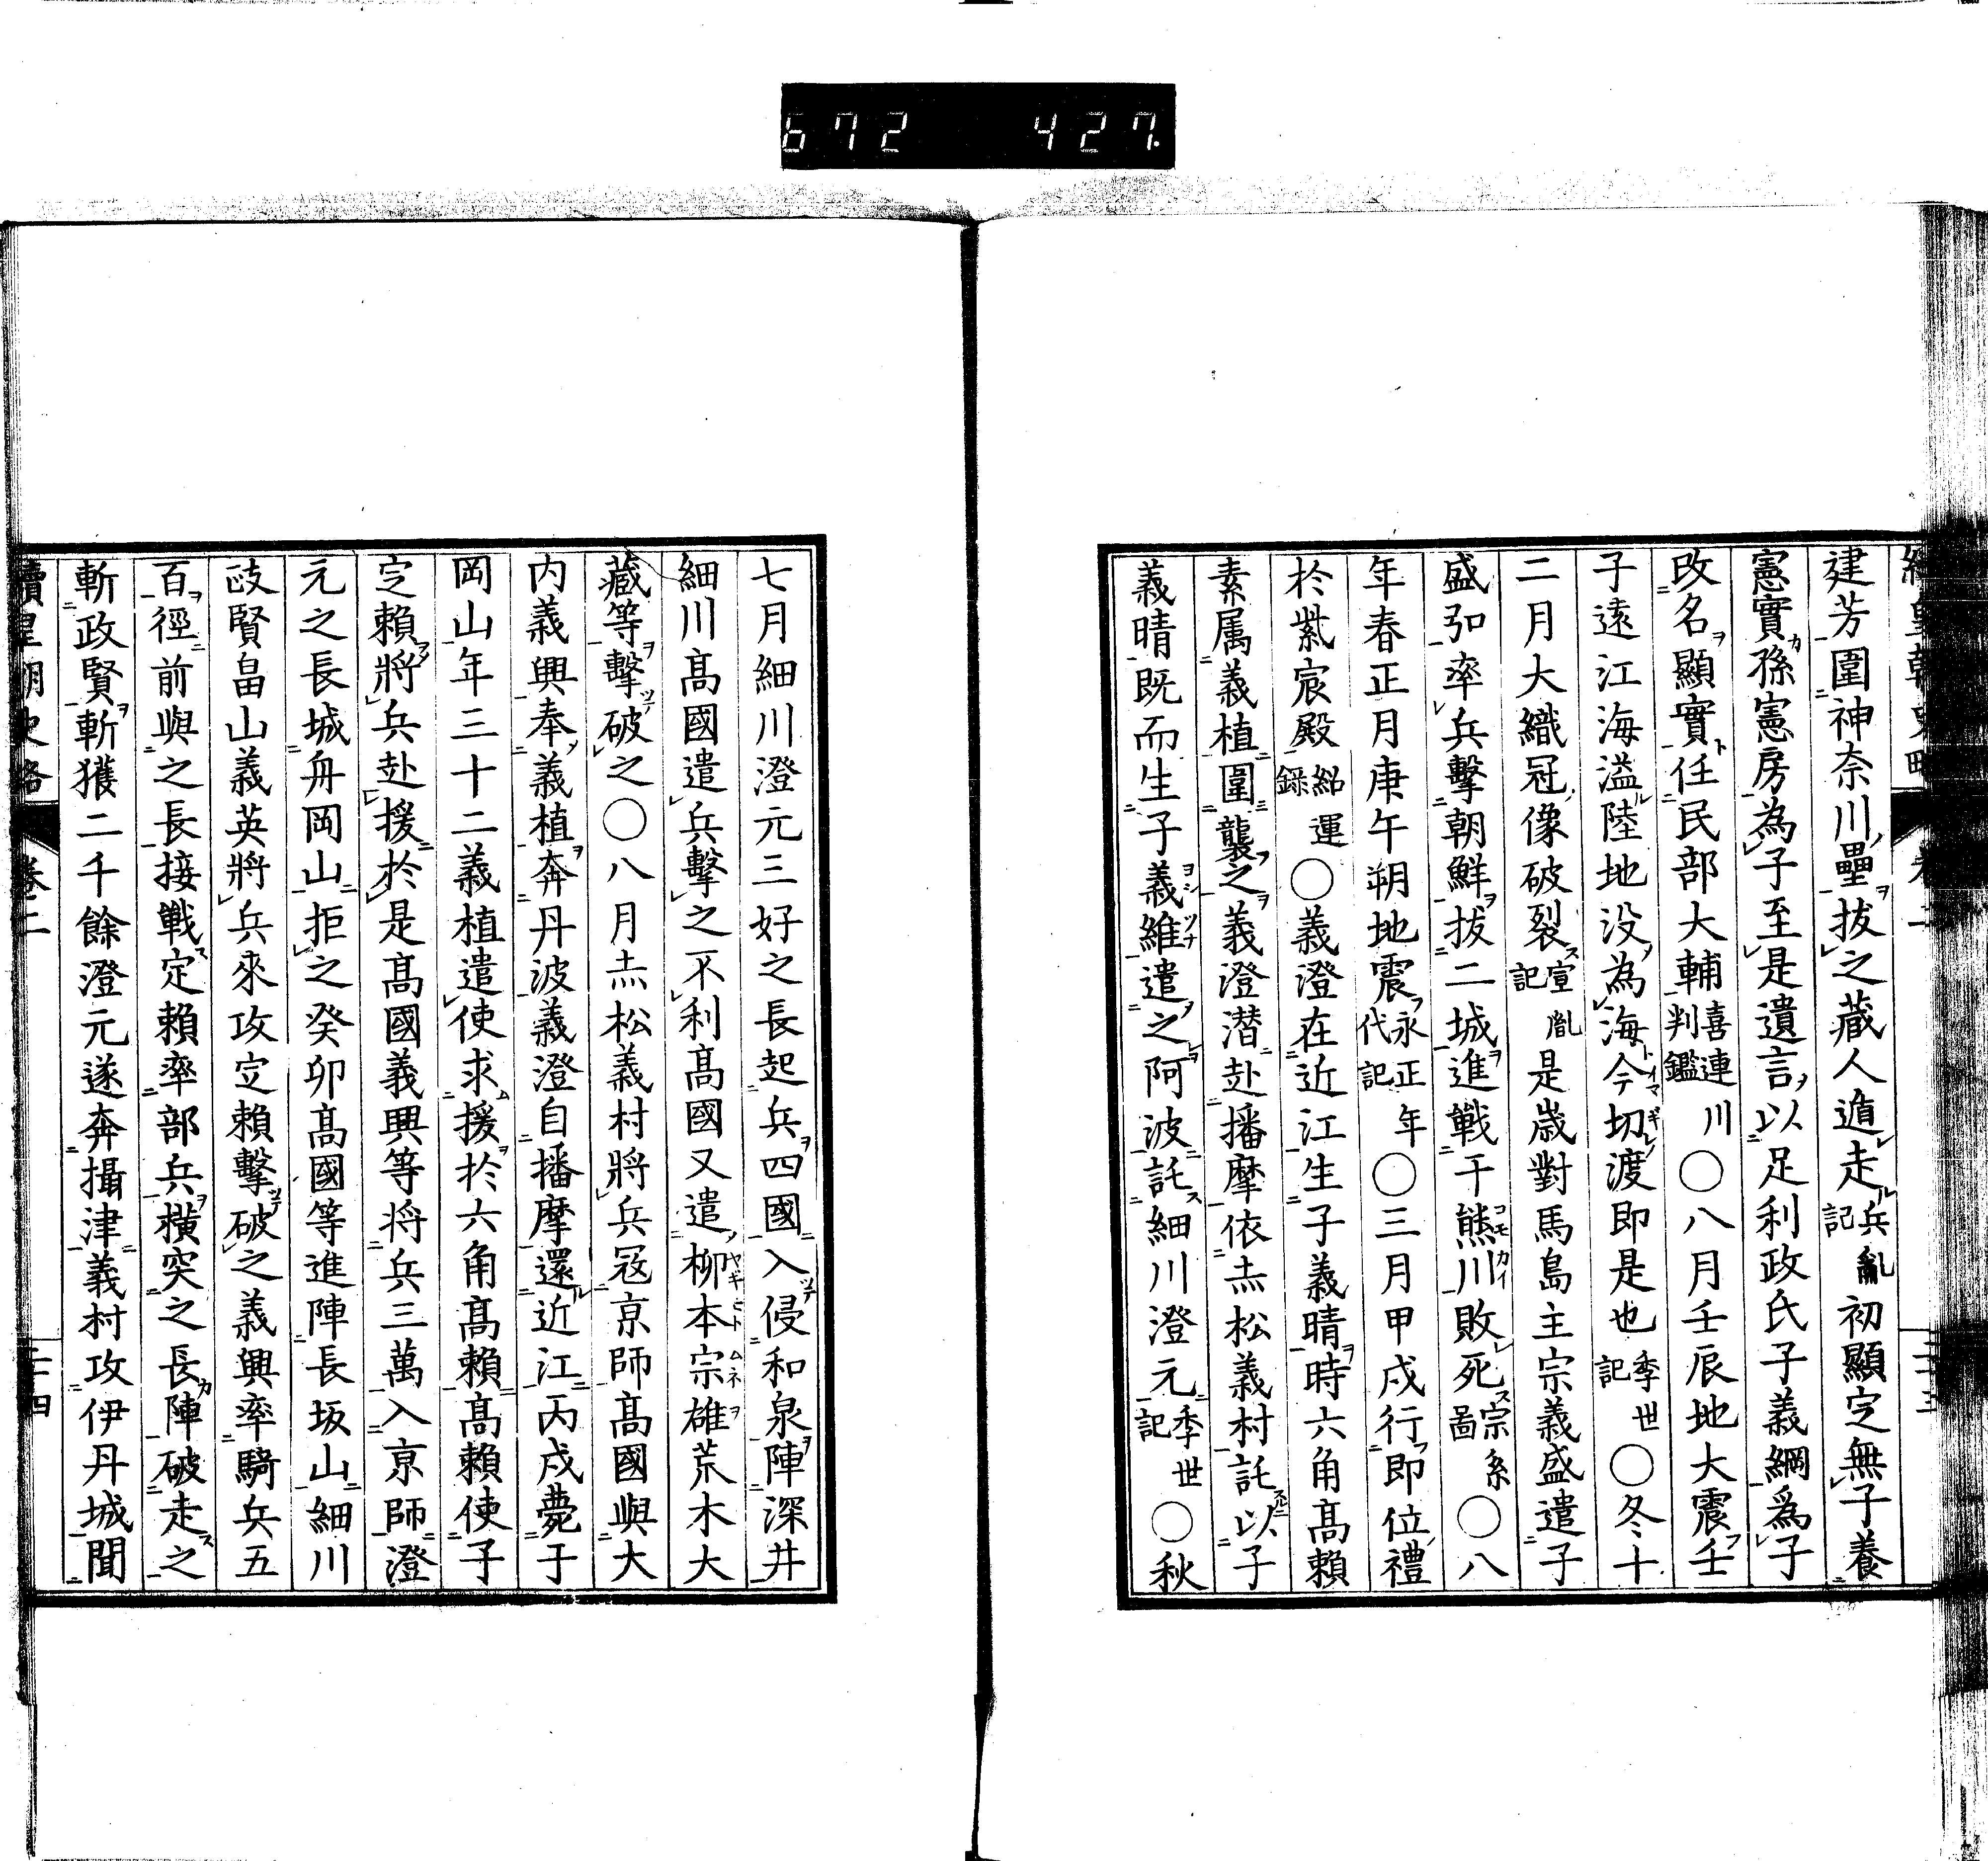 672 427.
建芳圍神奈川壘拔之藏人遁走兵亂記初顯定無子養
憲實孫憲房為子至是遺言以足利政氏子義綱爲子
改名顯實任民部大輔喜連川判鑑○八月壬辰地大震壬
子遠江海溢陸地没為海今切渡即是也季世記○冬十
二月大織冠像破裂宣胤記是歳對馬島主宗義盛遣子
盛弘率兵擊朝鮮拔二城進戰于熊川敗死宗系圖○八
年春正月庚午朔地震永正年代記○三月甲戌行即位禮
於紫宸殿紹運錄○義澄在近江生子義晴時六角高賴
素属義植圍襲之義澄潜赴播摩依赤松義村託以子
義晴既而生子義維遣之阿波託細川澄元季世記○秋
七月細川澄元三好之長起兵四國入侵和泉陣深井
細川高國遣兵擊之不利高國又遣柳本宗雄荒木大
藏等擊破之○八月赤松義村將兵冦京師高國與大
内義興奉義植奔丹波義澄自播摩還近江丙戌薨于
岡山年三十二義植遣使求援於六角高賴高賴使子
定賴將兵赴援於是高國義興等将兵三萬入京師澄
元之長城舟岡山拒之癸卯高國等進陣長坂山細川
政賢畠山義英將兵來攻定賴擊破之義興率騎兵五
百徑前與之長接戰定賴率部兵横突之長陣破走之
斬政賢斬獲二千餘澄元遂奔攝津義村攻伊丹城聞
續皇朝史略 卷二 二十四